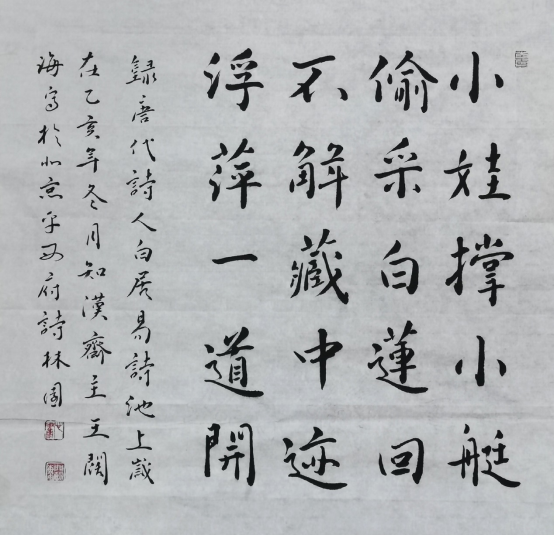 小娃撑小艇
偷采白蓮回
不解藏中迹
浮萍一道開
録唐代詩人白居易詩池上歲
在乙亥年冬月知漢齋主王
海写於北京平西府詩林園